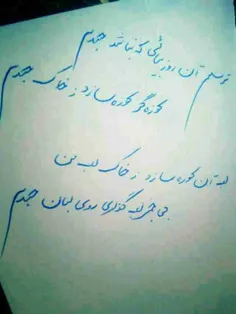 ترسم آن روز بیائی که نباشد جسدم
کوزه گر کوزه بسازد ز خاک جسدم
لب آن کوزه بسازد ز خاک لب من
بی خبر لب گذاری روی لبان جسدم